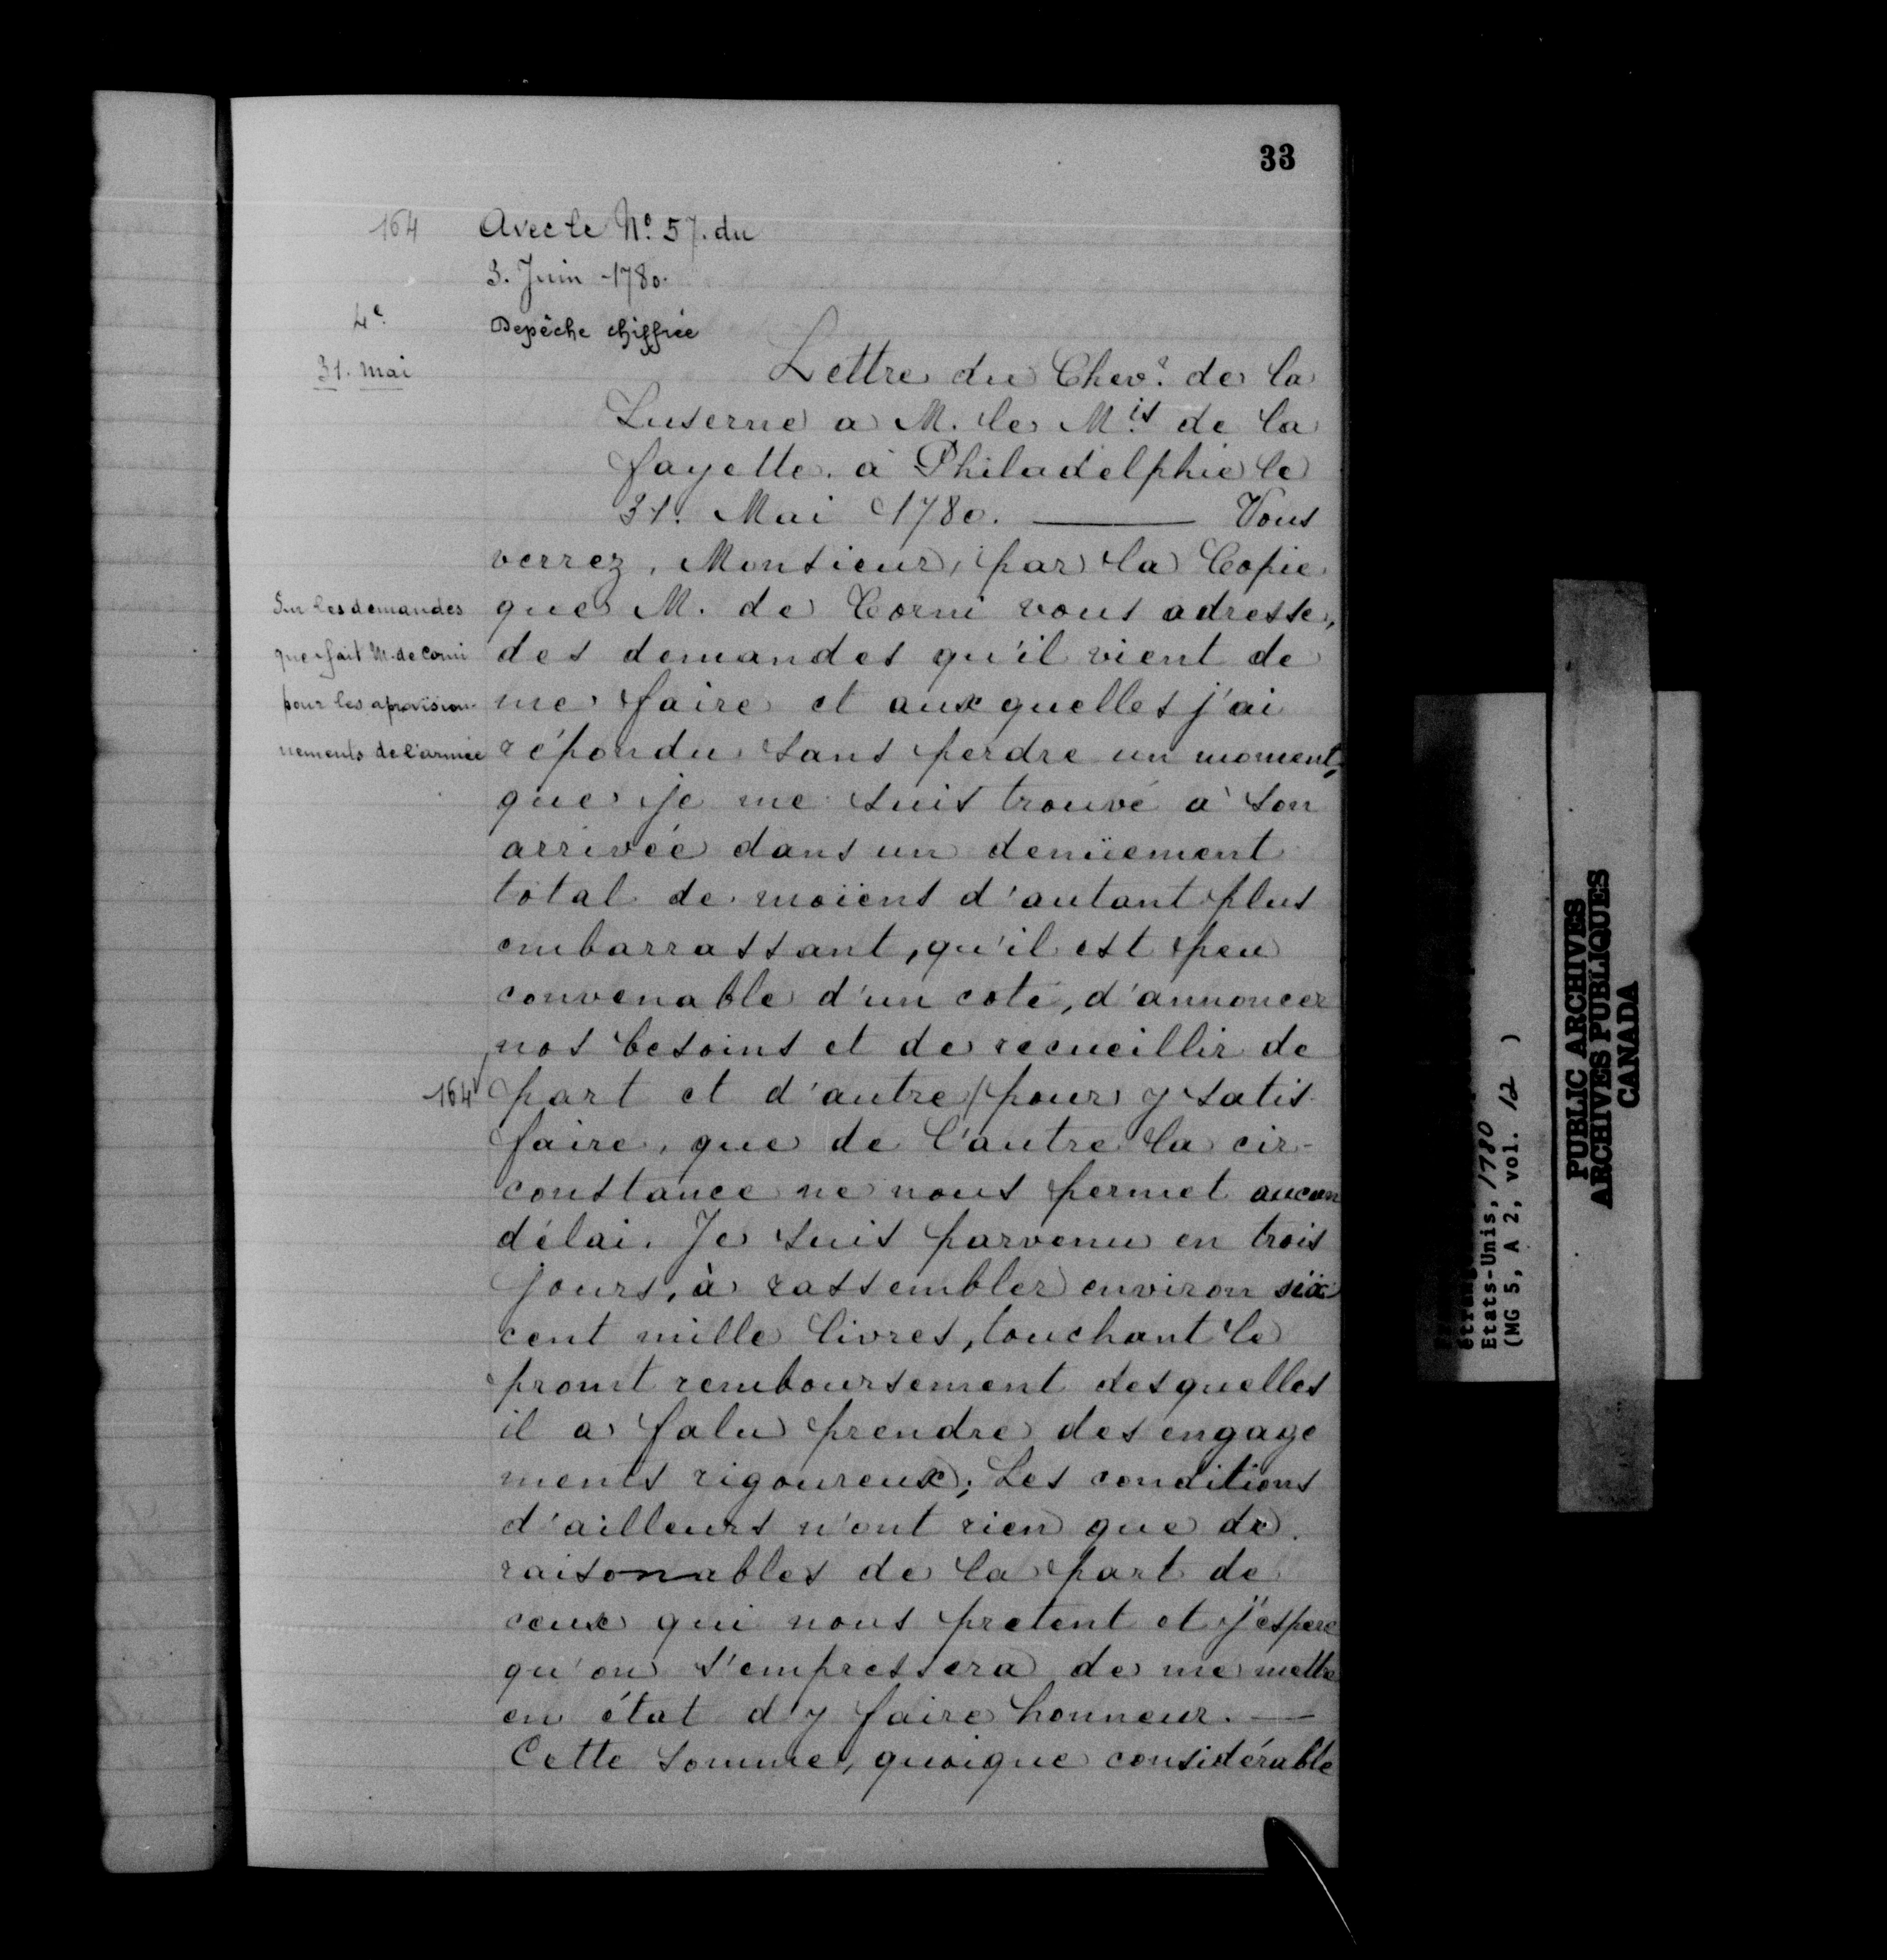 33
164
Avec le Nº. 57. du
3. Juin 1780.
4e.
Depêche chiffrée
31. mai
Lettre du Chevr. de la
Luserne a M. le Mis. de la
fayette. à Philadelphie le
31. Mai 1780. ——— Vous
verrez, Monsieur, par la Copie
Sur les demandes
que fait M. de Corni
pour les aprovision-
nements de l'armée
que M. de Corni vous adresse,
des demandes qu'il vient de
me faire et auxquelles j'ai
répondu sans perdre un moment,
que je me suis trouvé à son
arrivée dans un denüement
total de moïens d'autant plus
embarrassant, qu'il est peu
convenable d'un coté, d'annoncer
nos besoins et de recueillir de
164v
part et d'autre / pour y satis-
faire, que de l'autre la cir-
constance ne nous permet aucun
délai. Je suis parvenu en trois
jours, à rassembler environ six
cent mille livres, touchant le
promt remboursement desquelles
il a falu prendre des engage
ments rigoureux; Les conditions
d'ailleurs n'ont rien que de
raisonables de la part de
ceux qui nous pretent et j'espere
qu'on s'empressera de me mettre
en état d'y faire honneur. —
Cette somme, quoique considérable
Etats-Unis, 1780
(MG 5, A 2, vol. 12 )
PUBLIC ARCHIVES
ARCHIVES PUBLIQUES
CANADA